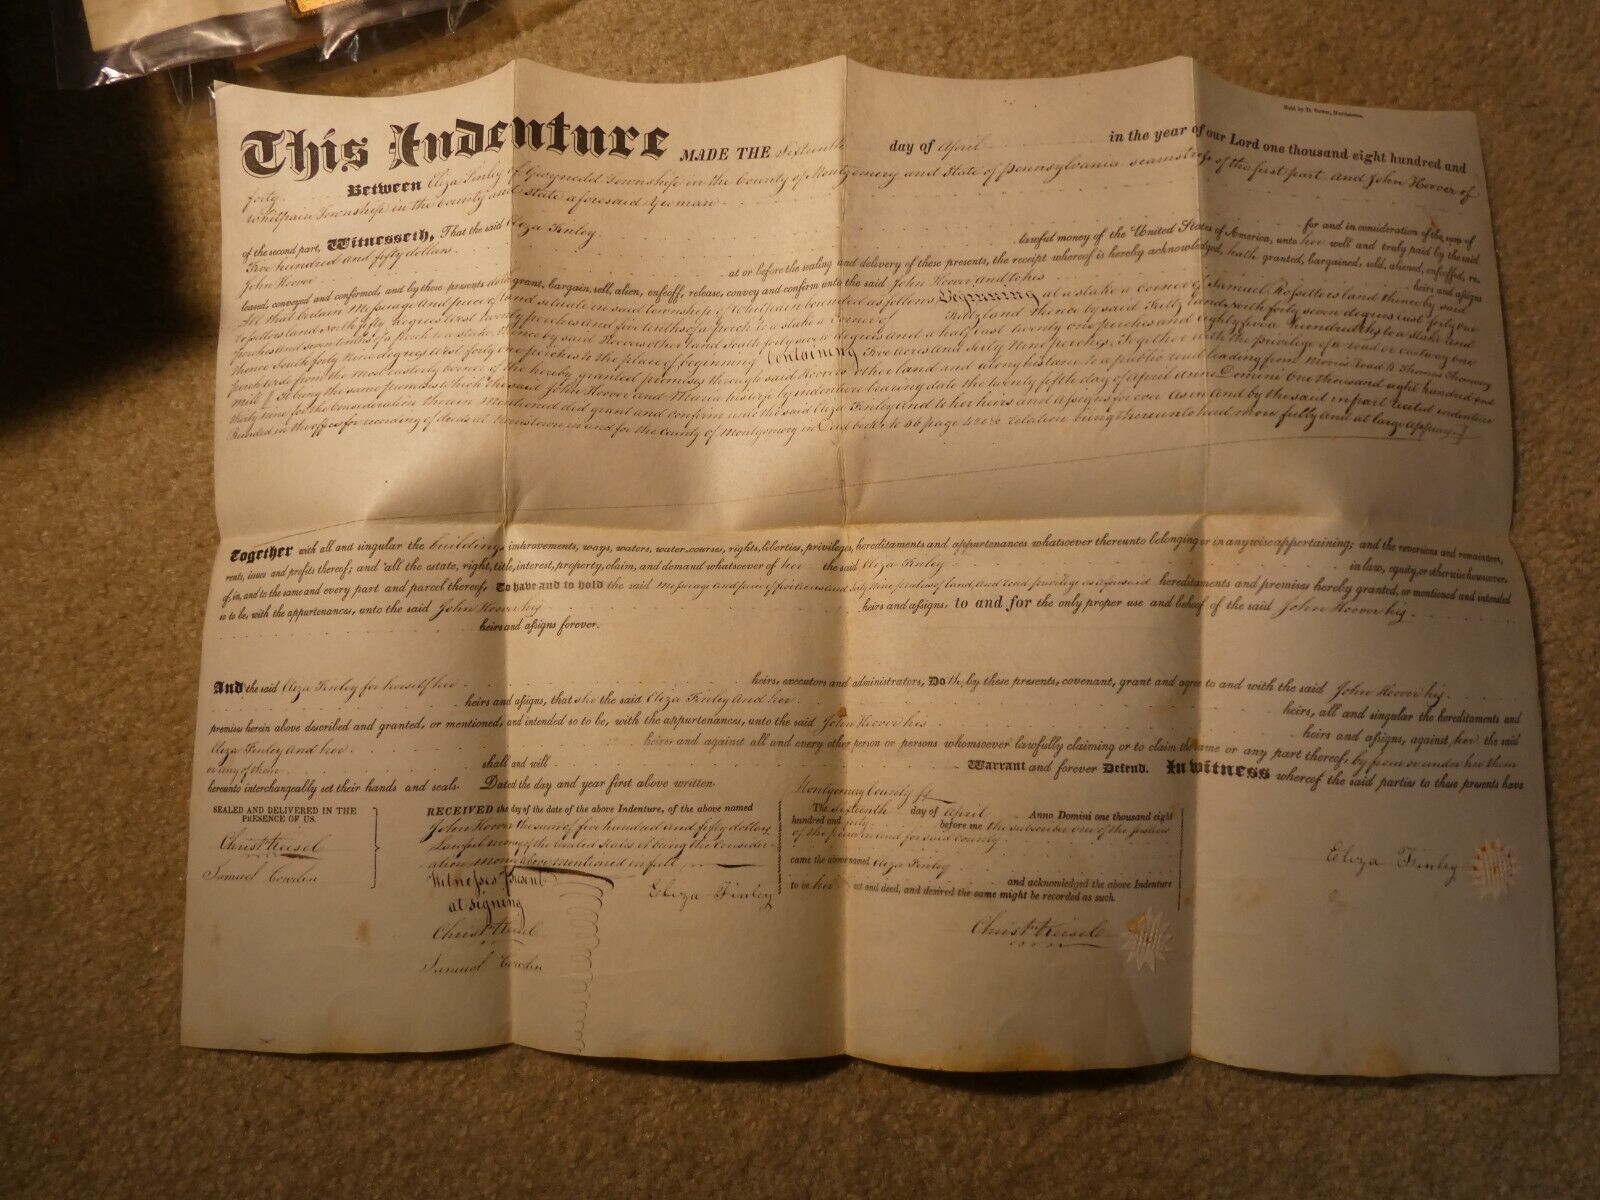 Sold by D. Sower, Norristown.
This Indenture MADE THE Sixteenth day of April in the year of our Lord one thousand eight hundred and
forty Between Eliza Finley of Gwynedd Township in the County of Montgomery and State of Pennsylvania seamstress of the first part and John Hoover of
Whitpain Township in the County and State aforesaid Yeoman
of the second part, Witnesseth, That the said Eliza Finley for and in consideration of the sum of
Five hundred and fifty dollars lawful money of the United States of America, unto her well and truly paid by the said
John Hoover at or before the sealing and delivery of these presents, the receipt whereof is hereby acknowledged, hath granted, bargained, sold, aliened, enfeoffed, re-
leased, conveyed and confirmed, and by these presents doth grant, bargain, sell, alien, enfeoff, release, convey and confirm unto the said John Hoover and to his heirs and assigns
All that certain Messuage and piece of land situate in said township of Whitpain bounded as follows Beginning at a stake a corner of Samuel land thence by said
land North fifty degrees West twenty perches and five tenths of a perch to a stake a corner of land thence by said land North forty seven degrees east forty one
perches and seven tenths of a perch to a stake, thence by said Hoovers other land South forty seven degrees and a half east twenty one perches and eighty five hundredths to a stake and
thence South forty Nine degrees West forty one perches to the place of beginning Containing Five acres and sixty Nine perches, Together with the privilege of a road or cartway one
perch wide from the most easterly corner of the hereby granted premises through said Hoovers other land and along his lane to a public road leading from Morris Road to Thomas
mill It being the same premises which the said John Hoover and Maria his wife by indenture bearing date the twenty fifth day of April Anno Domini One thousand eight hundred and
thirty Nine for the Consideration therein Mentioned did grant and confirm unto the said Eliza Finley and to her heirs and assigns forever As in and by the said in part recited indenture
Recorded in the office for recording of deeds at Norristown in and for the County of Montgomery in Deed book No 56 page relation being thereunto had more fully and at large appears
Together with all and singular the buildings improvements, ways, waters, water-courses, rights, liberties, privileges, hereditaments and appurtenances whatsoever thereunto belonging or in any wise appertaining; and the reversions and remainders,
rents, issues and profits thereof; and all the estate, right, title, interest, property, claim, and demand whatsoever of her the said Eliza Finley in law, equity, or otherwise howsoever,
of, in, and to the same and every part and parcel thereof, To have and to hold the said Messuage and piece of five acres and sixty Nine perches of land, and road privilege as aforesaid hereditaments and premises hereby granted, or mentioned and intended
so to be, with the appurtenances, unto the said John Hoover his heirs and assigns, to and for the only proper use and behoof of the said John Hoover his
heirs and assigns forever.
And the said Eliza Finley for herself her heirs, executors and administrators, Doth, by these presents, covenant, grant and agree to and with the said John Hoover his
heirs and assigns, that she the said Eliza Finley and her heirs, all and singular the hereditaments and
premises herein above described and granted, or mentioned, and intended so to be, with the appurtenances, unto the said John Hoover his heirs and assigns, against her the said
Eliza Finley and her heirs, and against all and every other person or persons whomsoever lawfully claiming or to claim the same or any part thereof, by from or under her them
or any of them shall and will Warrant and forever Defend. In witness whereof the said parties to these presents have
hereunto interchangeably set their hands and seals. Dated the day and year first above written.
SEALED AND DELIVERED IN THE
PRESENCE OF US.
Christ. Heisel
Samuel Cowden
RECEIVED the day of the date of the above Indenture, of the above named
John Hoover the sum of five hundred and fifty dollars
Lawful money of the United States it being the Consider-
ation Money above Mentioned in full
Witnesses Present
at signing
Eliza Finley
Christ. Heisel
Samuel Cowden
Montgomery County ss
The sixteenth day of April Anno Domini one thousand eight
hundred and forty before me the subscriber one of the justices
of the peace in and for said county
came the above named Eliza Finley
and acknowledged the above Indenture
to be her act and deed, and desired the same might be recorded as such.
Christ. Heisel
Eliza Finley